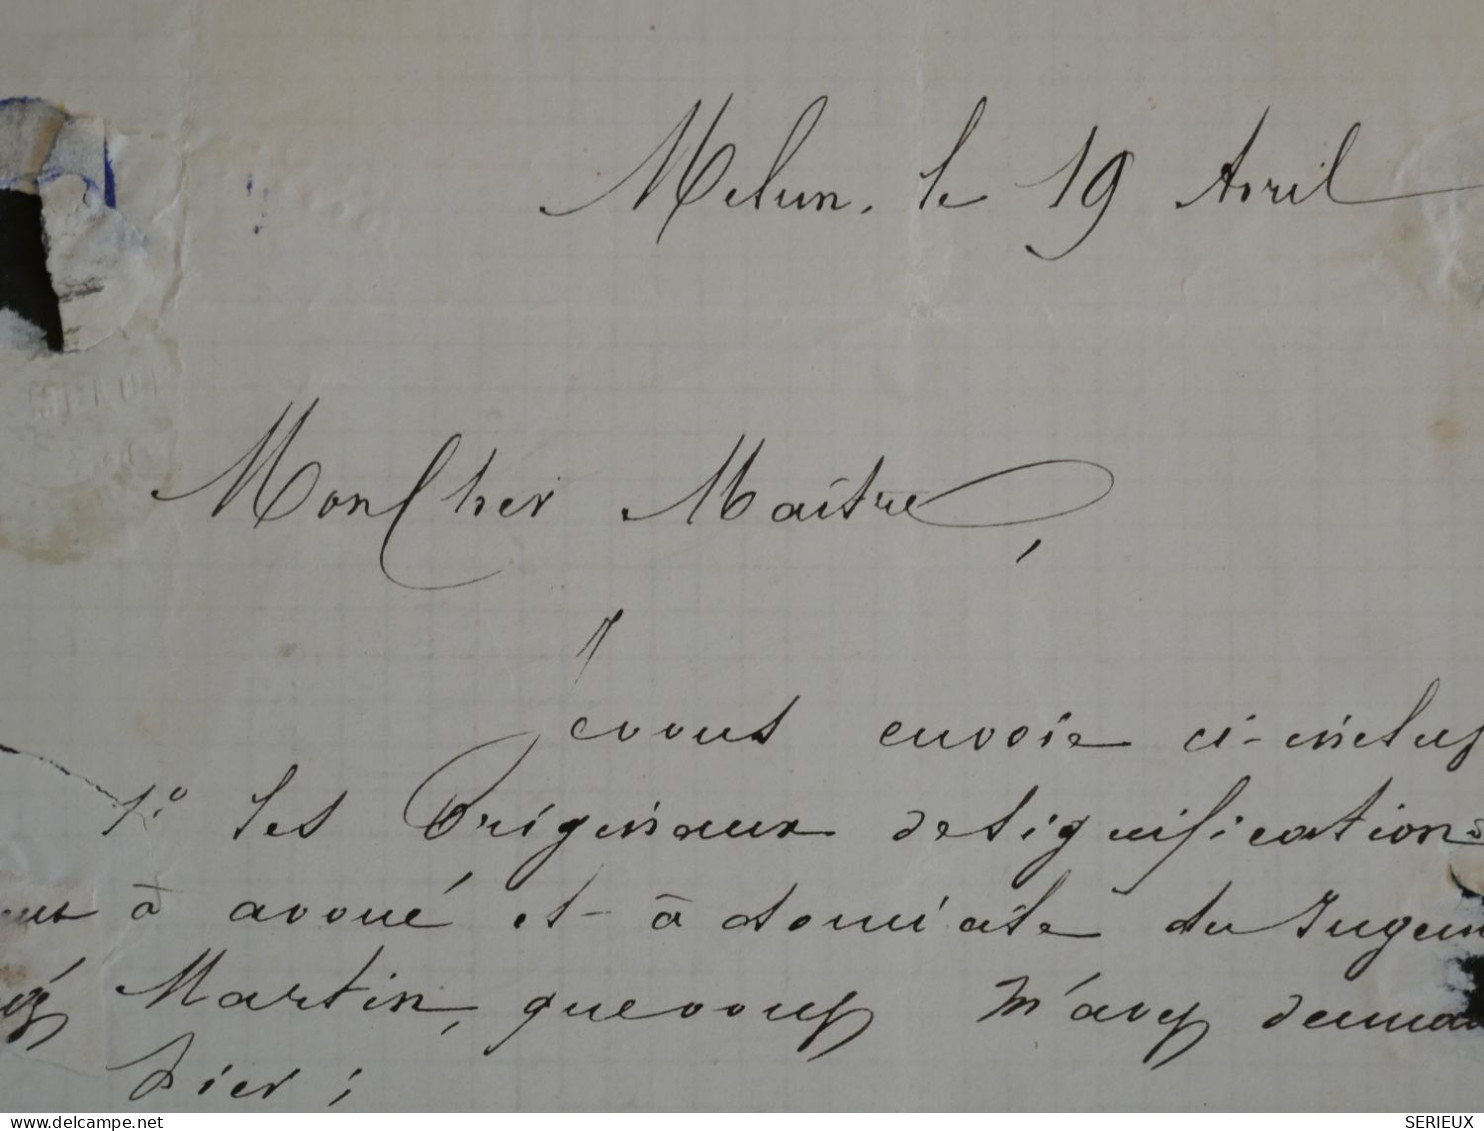 Melun, le 19 Avril
Mon Cher Maître,
Je vous envoie ci-inclus
1º les Originaux de significations
à avoué et à domicile du Jugem
Martin, que vous m'avez dema
hier ;
SERIEUX